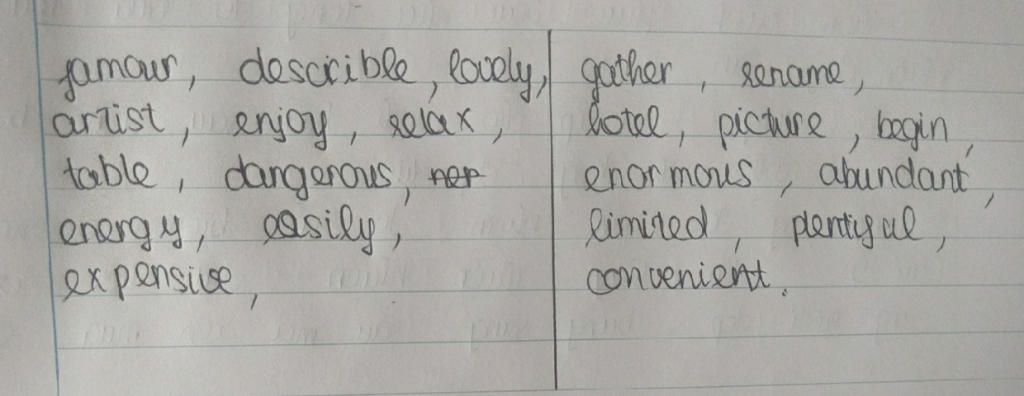 famour, describle, lovely,
artist, enjoy, relax,
table, dangerous,
energy, easily,
expensive,
gather, rename,
hotel, picture, begin,
enormous, abundant,
limited, plentiful,
convenient.